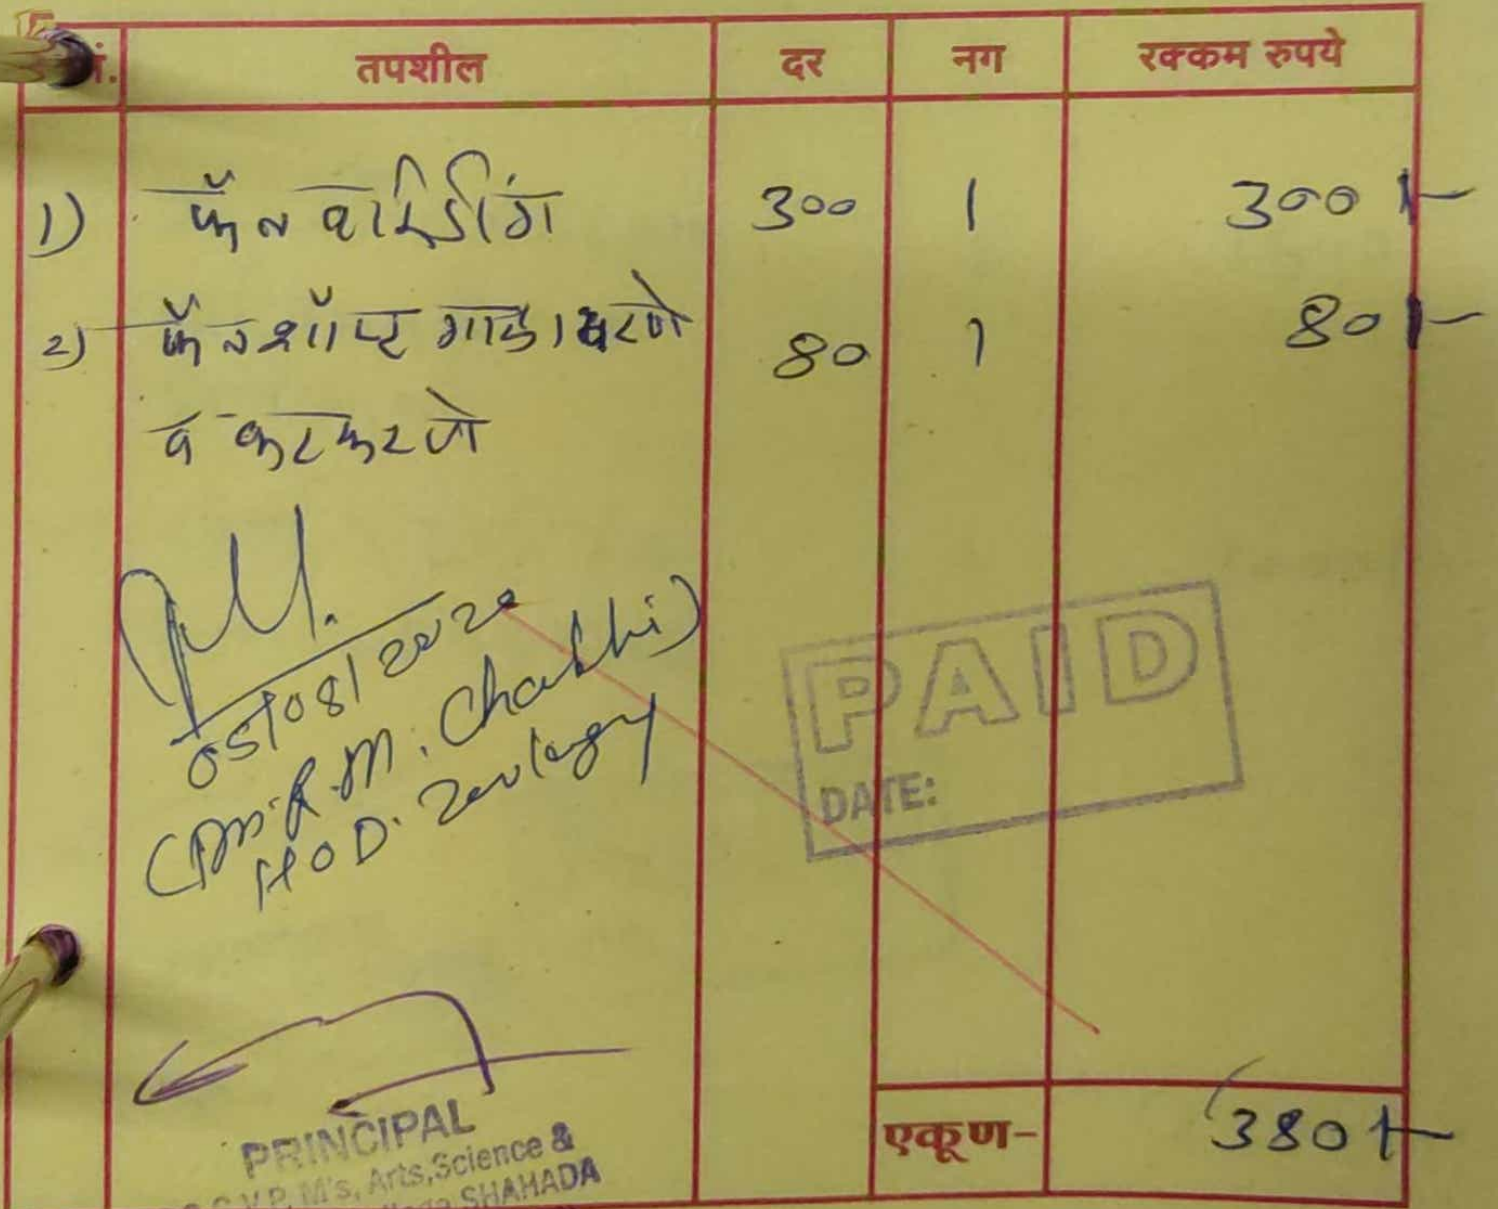 नं. तपशील दर नग रक्कम रुपये
1) फॅन वाईडींग 300 1 300/-
2) फॅन शॉप्ट गाळा भरणे 80 1 80/-
व करकरणे
05/08/2020
R.M. Chakhi)
HOD. Zoology
PAID
DATE:
PRINCIPAL
V.P. M's, Arts,Science &
SHAHADA
एकूण- 380/-